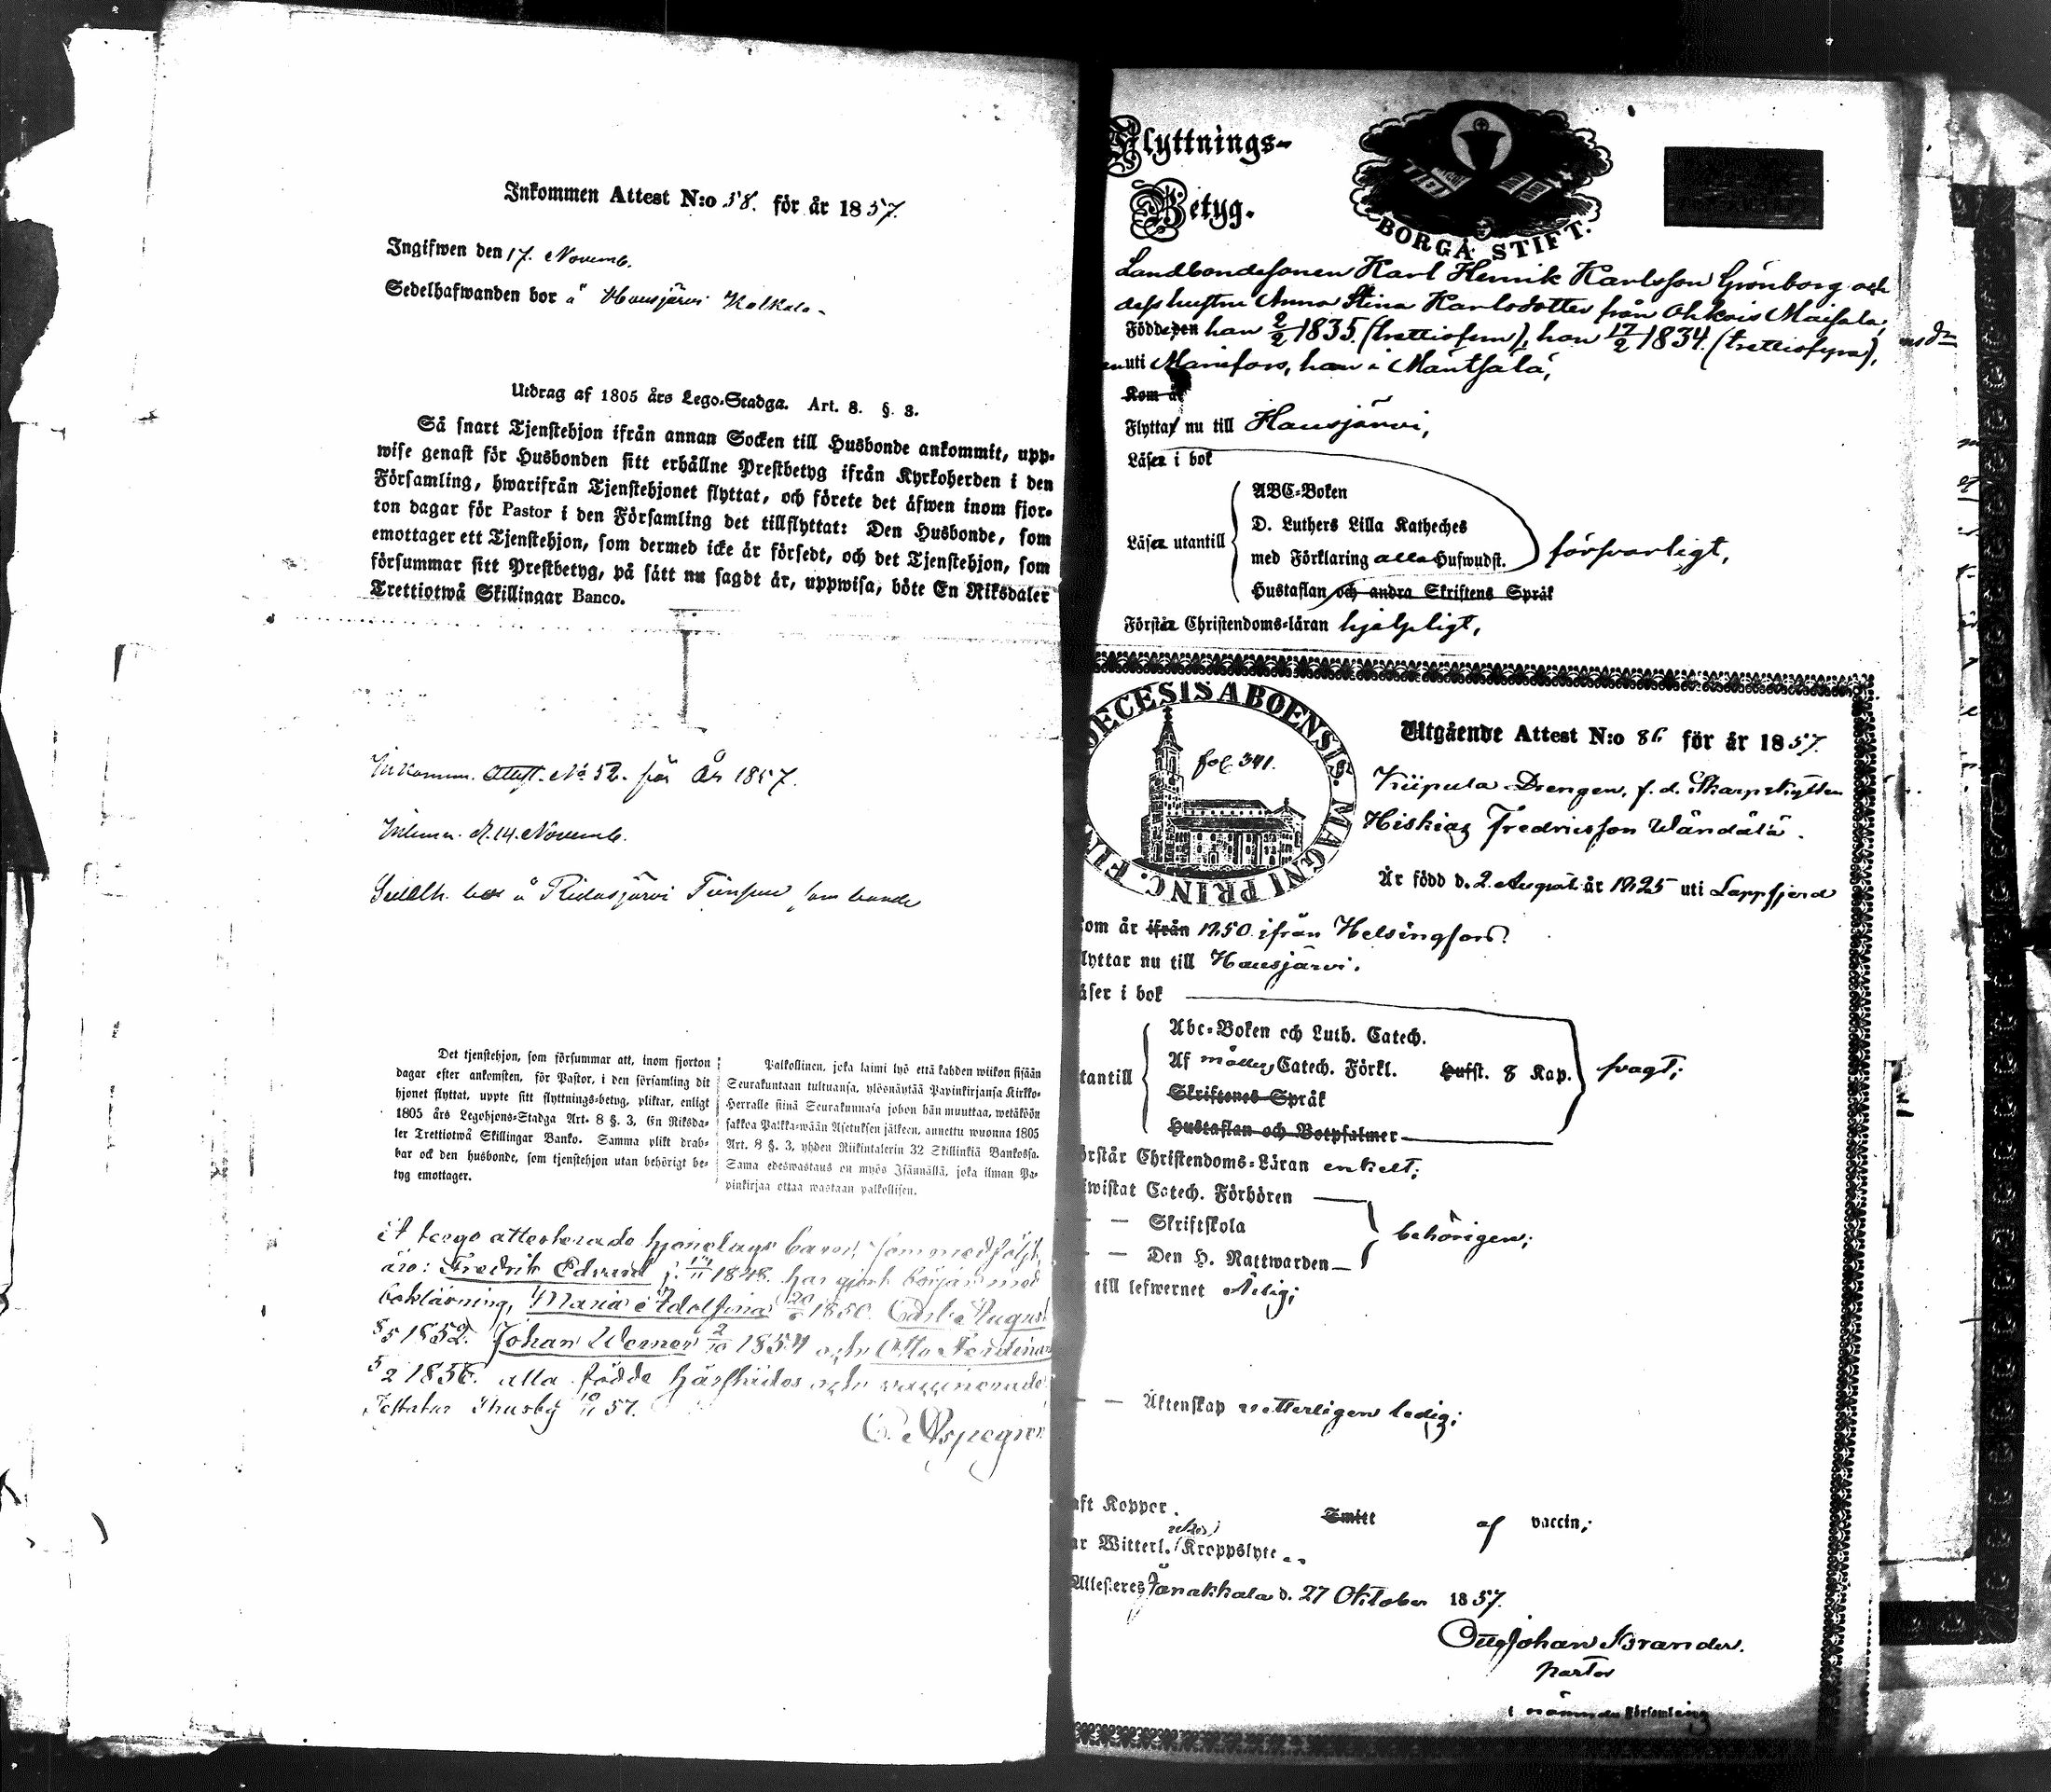 Inkommen Attest N:o 58. för år 1857.
Ingifwen den 17. Novemb.
Sedelhafwanden bor å Hausjärvi Kalkala
Utdrag af 1805 års Lego-Stadga. Art. 8. §. 3.
Så snart Tjenstehjon ifrån annan Socken till Husbonde ankommit, upp-
wise genast för Husbonden sitt erhållne Prestbetyg ifrån Kyrkoherden i den
Församling, hwarifrån Tjenstehjonet flyttat, och förete det äfwen inom fjor-
ton dagar för Pastor i den Församling det tillflyttat: Den Husbonde, som
emottager ett Tjenstehjon, som dermed icke är försedt, och det Tjenstehjon, som
försummar sitt Prestbetyg, på sätt nu sagdt är, uppwisa, böte En Riksdaler
Trettiotwå Skillingar Banco.
Inkomm. Attest. No 52. för år 1857.
d. 14. Novemb.
Sedelh. bor å Ridasjärvi som bonde
Det tjenstehjon, som försummar att, inom fjorton
dagar efter ankomsten, för Pastor, i den församling dit
hjonet flyttat, uppte sitt flyttnings-betyg, pliktar, enligt
1805 års Legohjons-Stadga Art. 8 §. 3, En Riksda-
ler Trettiotwå Skillingar Banko. Samma plikt drab-
bar ock den husbonde, som tjenstehjon utan behörigt be-
tyg emottager.
Palkollinen, joka laimi lyö että kahden wiikon sisään
Seurakuntaan tultuansa, ylösnäyttää Papinkirjansa Kirkko-
Herralle siinä Seurakunnasa johon hän muuttaa, wetäköön
sakkoa Palkka-wään Asetuksen jälkeen, annettu wuonna 1805
Art. 8 §. 3, yhden Riikintalerin 32 Skillinkiä Bankossa.
Sama edeswastaus on myös Isännällä, joka ilman Pa-
pinkirjaa ottaa wastaan palkollisen.
attesterade hjonelags barn, som medfölja,
äro: Fredrik Edvard f. 14/11 1848. har gjort början med
boklärning, Maria Adolfina 20/ 1850. Carl August
8/5 1852. Johan Werner 2/10 1854 och Otto Ferdinan
5/2 1856. alla födde härstädes och vaccinerade
Testatur Thusby 10/11 57.
C. Aspegren
Flyttnings-
Betyg.
BIBLIA
BORGÅ STIFT.
Landbondesonen Karl Henrik Karlsson Grönborg och
dess hustru Anna Stina Karlsdotter från Ohkois Maisala,
Födde den han 2/2 1835. (trettiofem), hon 17/2 1834. (trettiofyra),
uti Mariefors, hon i Mäntsälä,
Kom år
Flyttar nu till Hausjärvi,
Läser i bok
Läser utantill
ABC-Boken
D. Luthers Lilla Katheches
med Förklaring alla Hufwudst.
Hustaflan och andra Skriftens Språk
försvarligt,
Förstår Christendoms-läran hjelpligt,
OECESIS ABOENSIS. MAGNI PRINC. FI
fol. 341.
Utgående Attest N:o 86 för år 1857.
Kiipula Drengen, f. d. Skarpskytten
Hiskias Fredricsson Wändälä.
Är född d. 2. August år 1825 uti Lappfjerd
om år ifrån 1850 ifrån Helsingfors.
lyttar nu till Hausjärvi.
äser i bok
tantill
Abc-Boken och Luth. Catech.
Af Catech. Förkl. Hufst. 8 Kap.
Skriftenes Språk
Hustaflan och Botpsalmer
svagt;
örstår Christendoms-Läran enkelt;
iwistat Catech. Förhören
— — Skriftskola
— — Den H. Nattwarden
behörigen;
till lefwernet
— — Äktenskap witterligen ledig;
aft Koppor Smitt af vaccin;
ar Witterl. Kroppslyte
Attesteres Janakkala d. 27 Oktober 1857.
Otto Johan Brander.
pastor
i nämnda Församling